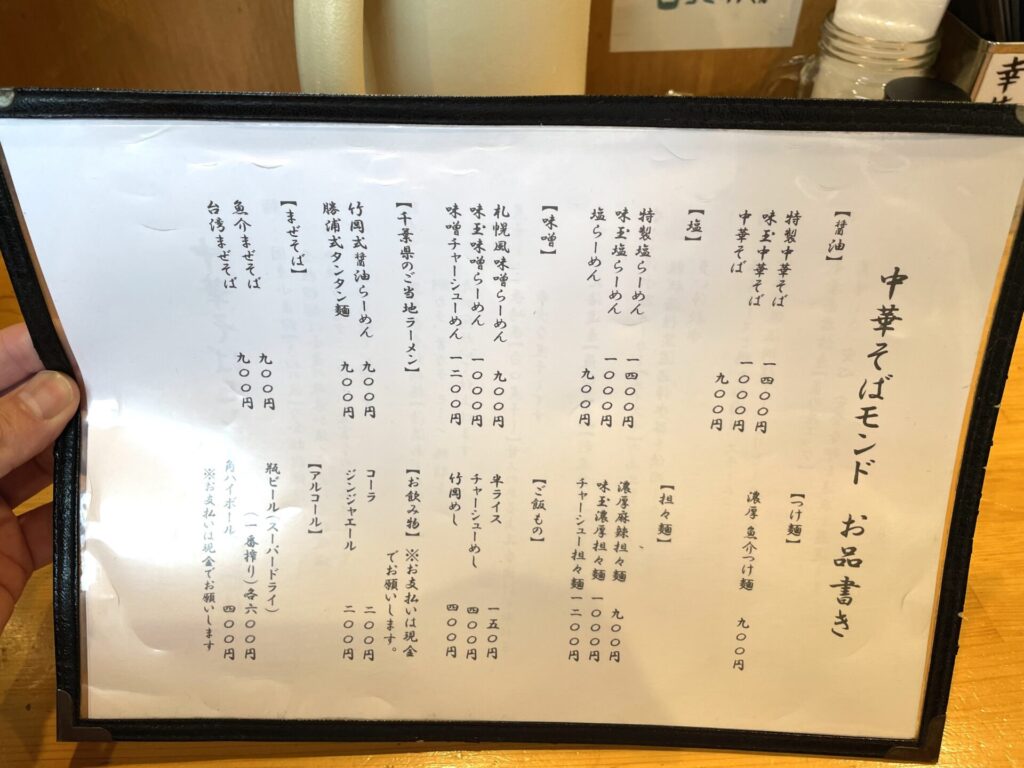 中華そばモンド お品書き
【醤油】
特製中華そば 一四〇〇円
味玉中華そば 一〇〇〇円
中華そば 九〇〇円
【塩】
特製塩らーめん 一四〇〇円
味玉塩らーめん 一〇〇〇円
塩らーめん 九〇〇円
【味噌】
札幌風味噌らーめん 九〇〇円
味玉味噌らーめん 一〇〇〇円
味噌チャーシューめん 一二〇〇円
【千葉県のご当地ラーメン】
竹岡式醤油らーめん 九〇〇円
勝浦式タンタン麺 九〇〇円
【まぜそば】
魚介まぜそば 九〇〇円
台湾まぜそば 九〇〇円
【つけ麺】
濃厚 魚介つけ麺 九〇〇円
【担々麺】
濃厚麻辣担々麺 九〇〇円
味玉濃厚担々麺 一〇〇〇円
チャーシュー担々麺 一二〇〇円
【ご飯もの】
半ライス 一五〇円
チャーシューめし 四〇〇円
竹岡めし 四〇〇円
【お飲み物】※お支払いは現金
でお願いします。
コーラ 二〇〇円
ジンジャエール 二〇〇円
【アルコール】
瓶ビール(スーパードライ)
(一番搾り)各六〇〇円
角ハイボール 四〇〇円
※お支払いは現金でお願いします
幸